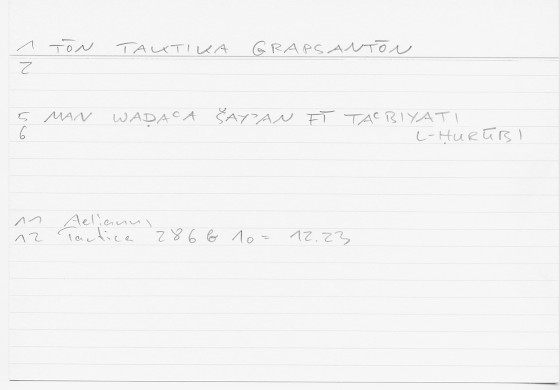 1 TŌN TAKTIKA GRAPSANTŌN
2
5 MAN WAḌAᶜA ŠAYʾAN FĪ TAᶜBIYATI
6 L-ḤURŪBI
11 Aelianus,
12 Tactica 286 b 10 = 12.23